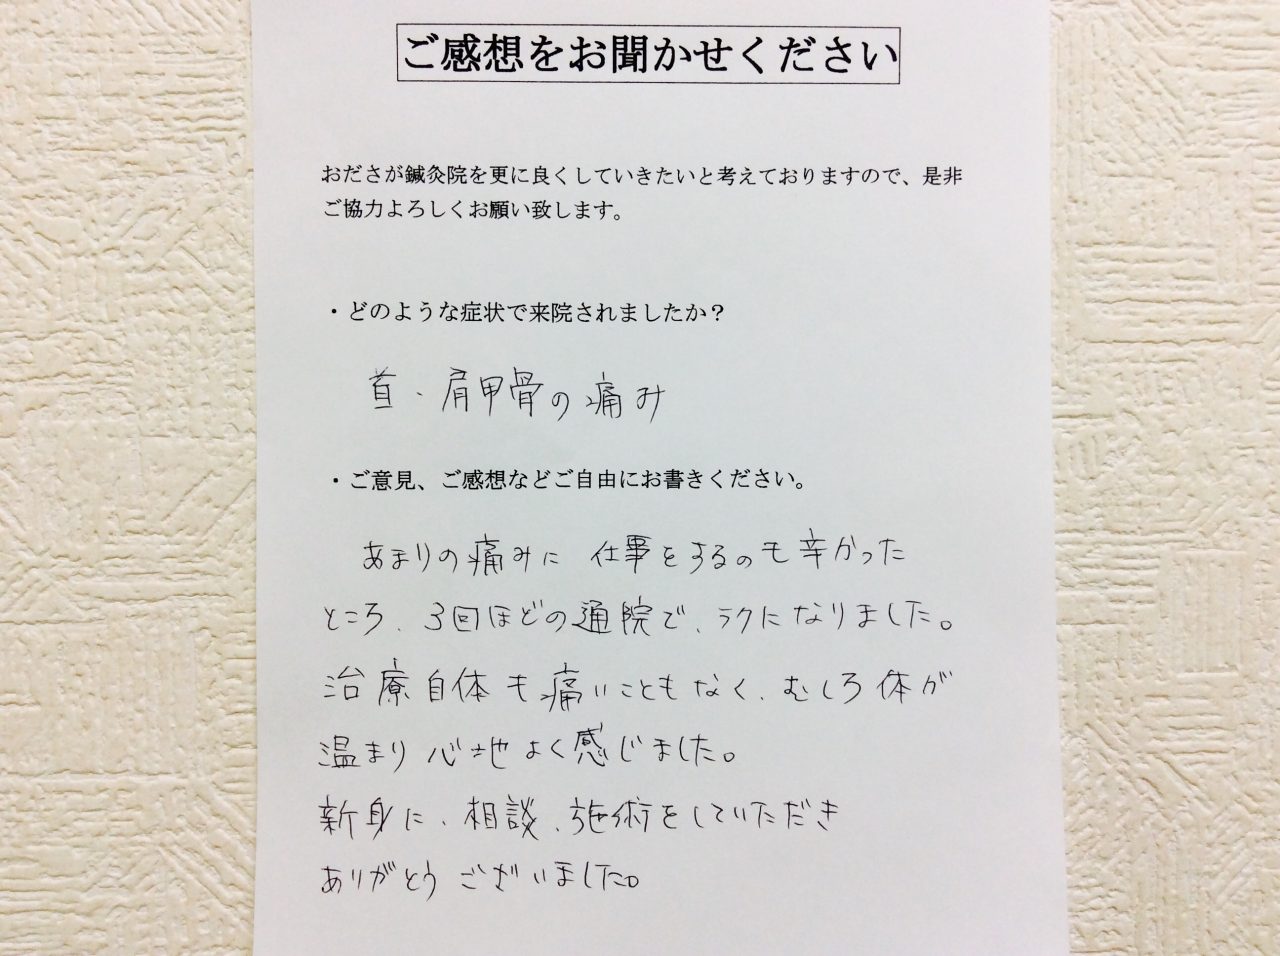 ご感想をお聞かせください
おださが鍼灸院を更に良くしていきたいと考えておりますので、是非
ご協力よろしくお願い致します。
・どのような症状で来院されましたか？
首・肩甲骨の痛み
・ご意見、ご感想などご自由にお書きください。
あまりの痛みに 仕事をするのも辛かった
ところ、3回ほどの通院で、ラクになりました。
治療自体も痛いこともなく、むしろ体が
温まり心地よく感じました。
新身に、相談、施術をしていただき
ありがとうございました。